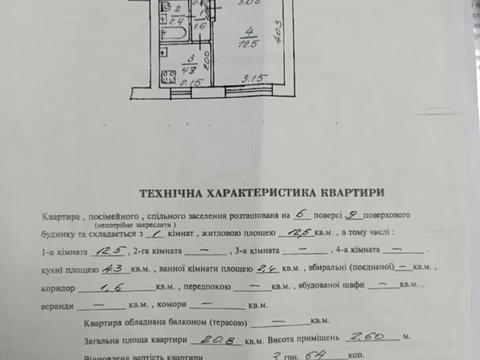 3.05
2
2.4
1
1.6
4
12.5
4.03
3
4.3
2.00
2.15
3.15
ТЕХНІЧНА ХАРАКТЕРИСТИКА КВАРТИРИ
Квартира , посімейного , спільного заселення розташована на 6 поверсі 9 поверхового
(непотрібне закреслити)
будинку та складається з 1 кімнат , житловою площею 12,5 кв.м , в тому числі :
1-а кімната 12,5 , 2-га кімната — , 3-а кімната — , 4-а кімната — .
кухні площею 4.3 кв.м , ванної кімнати площею 2,4 кв.м , вбиральні (поєднаної) — кв.м ,
коридор 1,6 кв.м , передпокою — кв.м , вбудованої шафи — кв.м ,
веранди — кв.м , комори — кв.м.
Квартира обладнана балконом (терасою) — кв.м.
Загальна площа квартири 20.8 кв.м. Висота приміщень 2,60 м.
Відновлена вартість квартири грн. 64 коп.